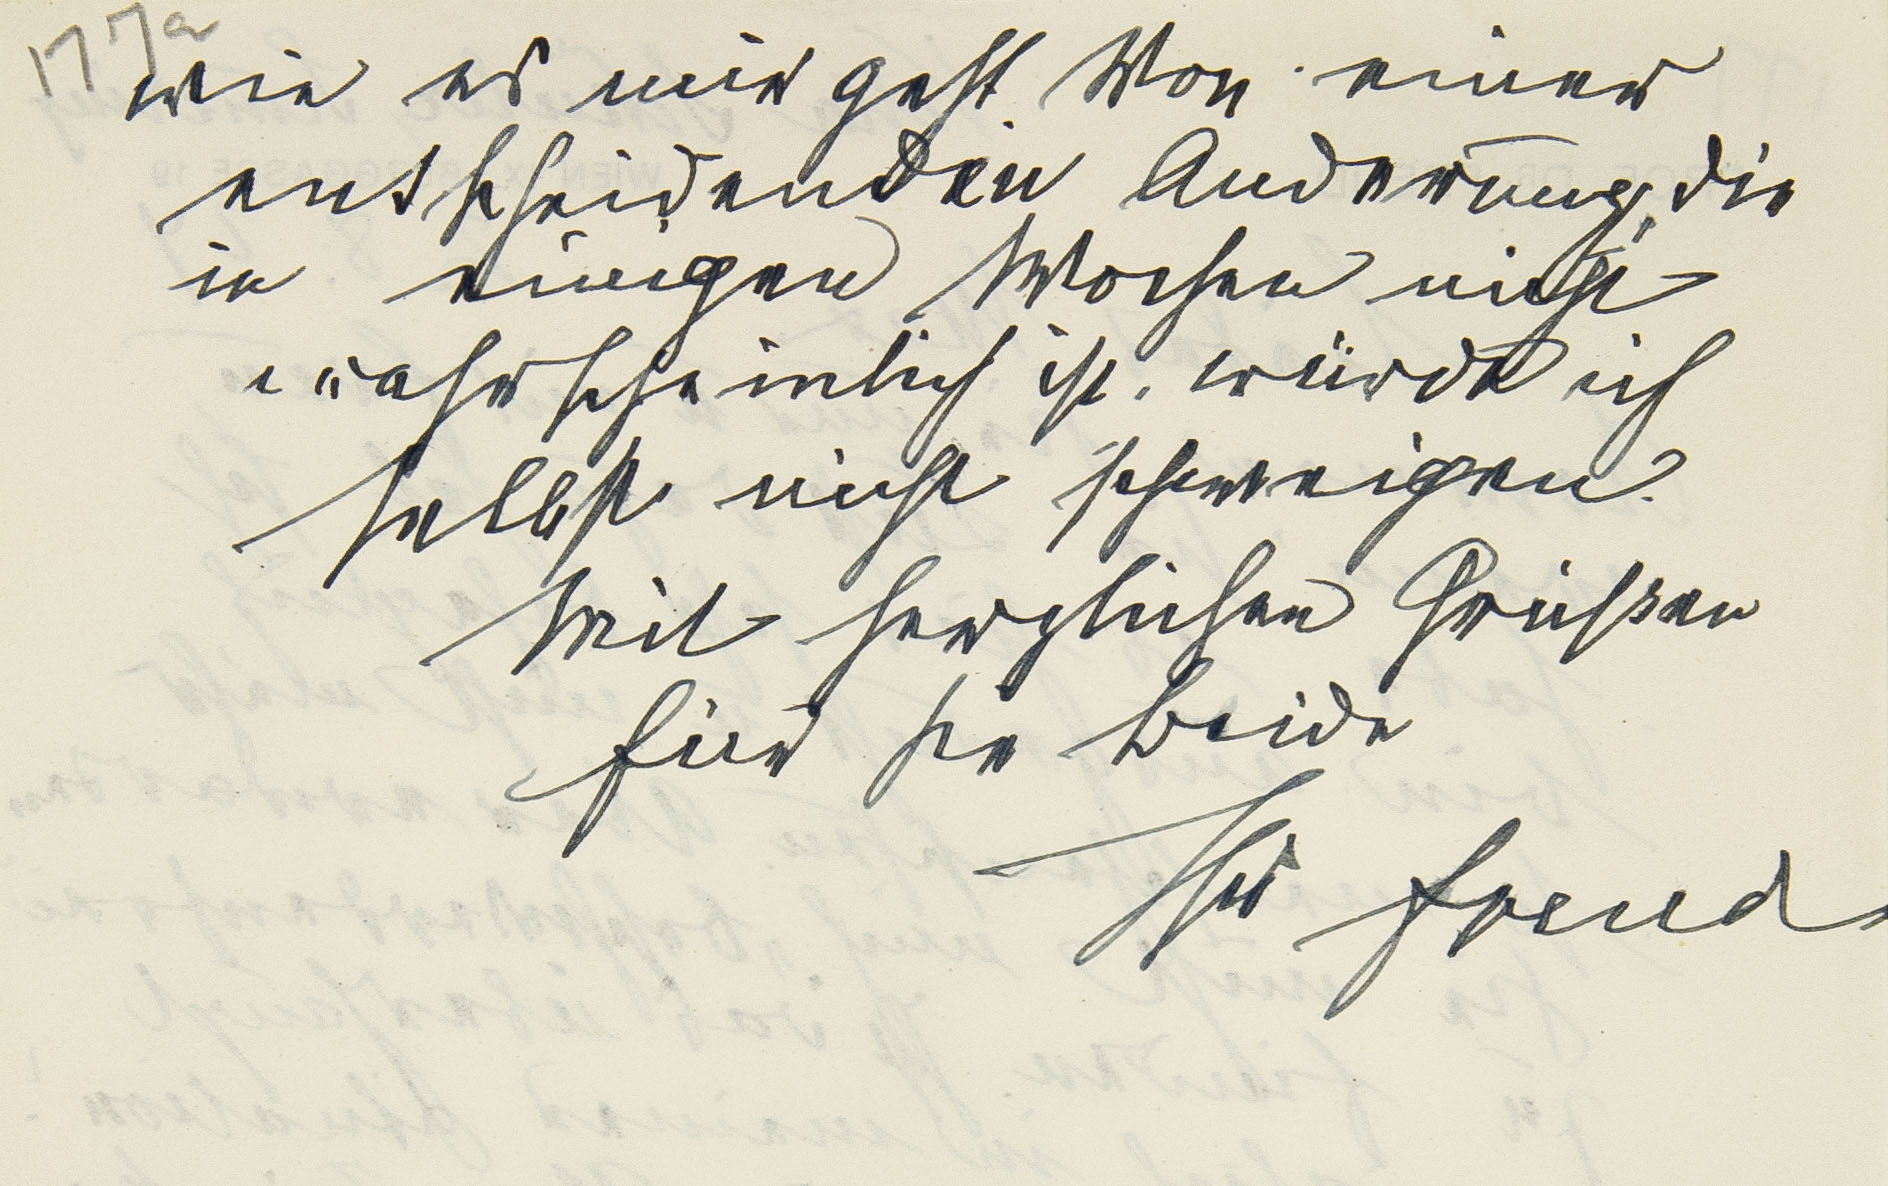 177a
wie es mir geht Von einer
entscheidenden Änderung, die
in einigen Wochen nicht
wahrscheinlich ist, würde ich
selbst nicht schweigen.
Mit herzlichen Grüßen
für sie beide
Ihr Freud